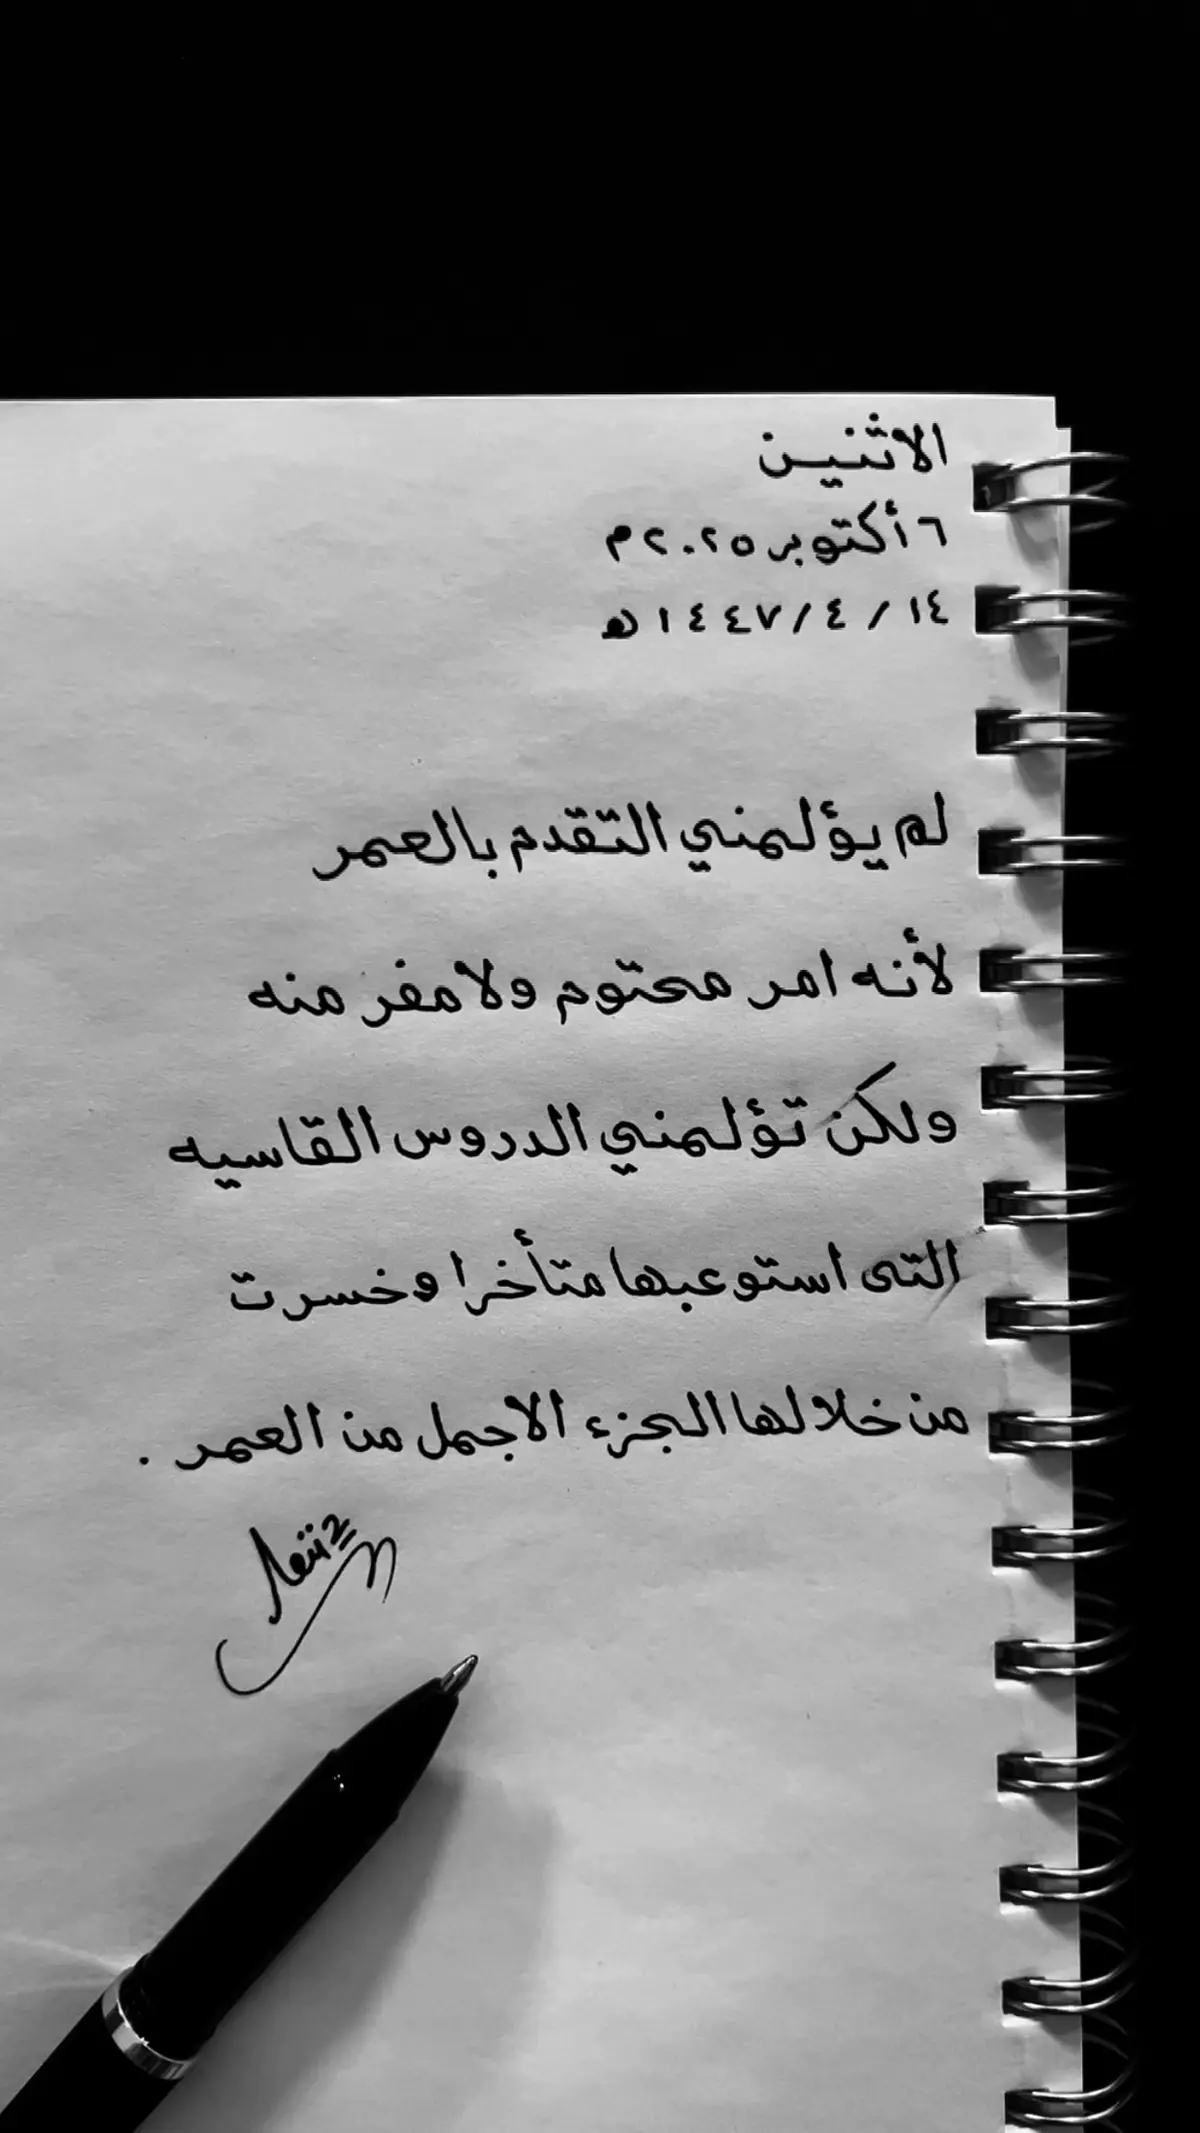 الاثنيـن
٦ أكتوبر ٢٠٢٥م
١٤ / ٤ / ١٤٤٧ه
لم يؤلمني التقدم بالعمر
لأنه امر محتوم ولا مفر منه
ولكن تؤلمني الدروس القاسيه
التى استوعبها متأخرا وخسرت
من خلالها الجزء الاجمل من العمر .